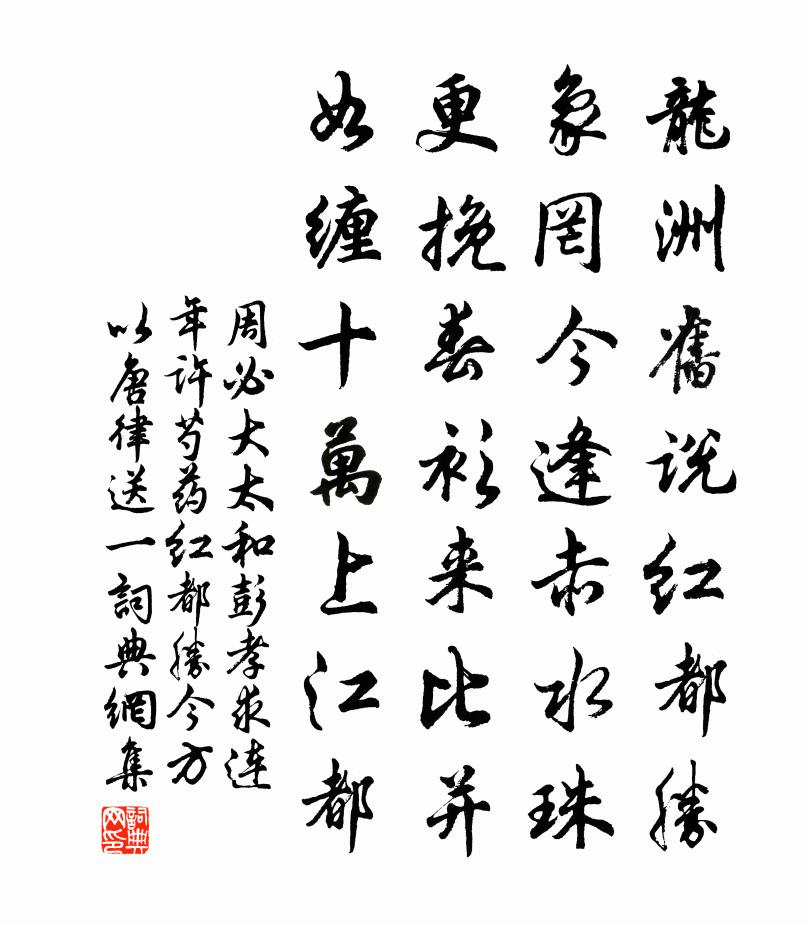 龍洲舊説紅都勝
象罔今逢赤水珠
更挽春衫来比并
如纏十萬上江都
周必大太和彭孝求連
年許芍药紅都勝今方
以唐律送一詞典網集
詞典网印